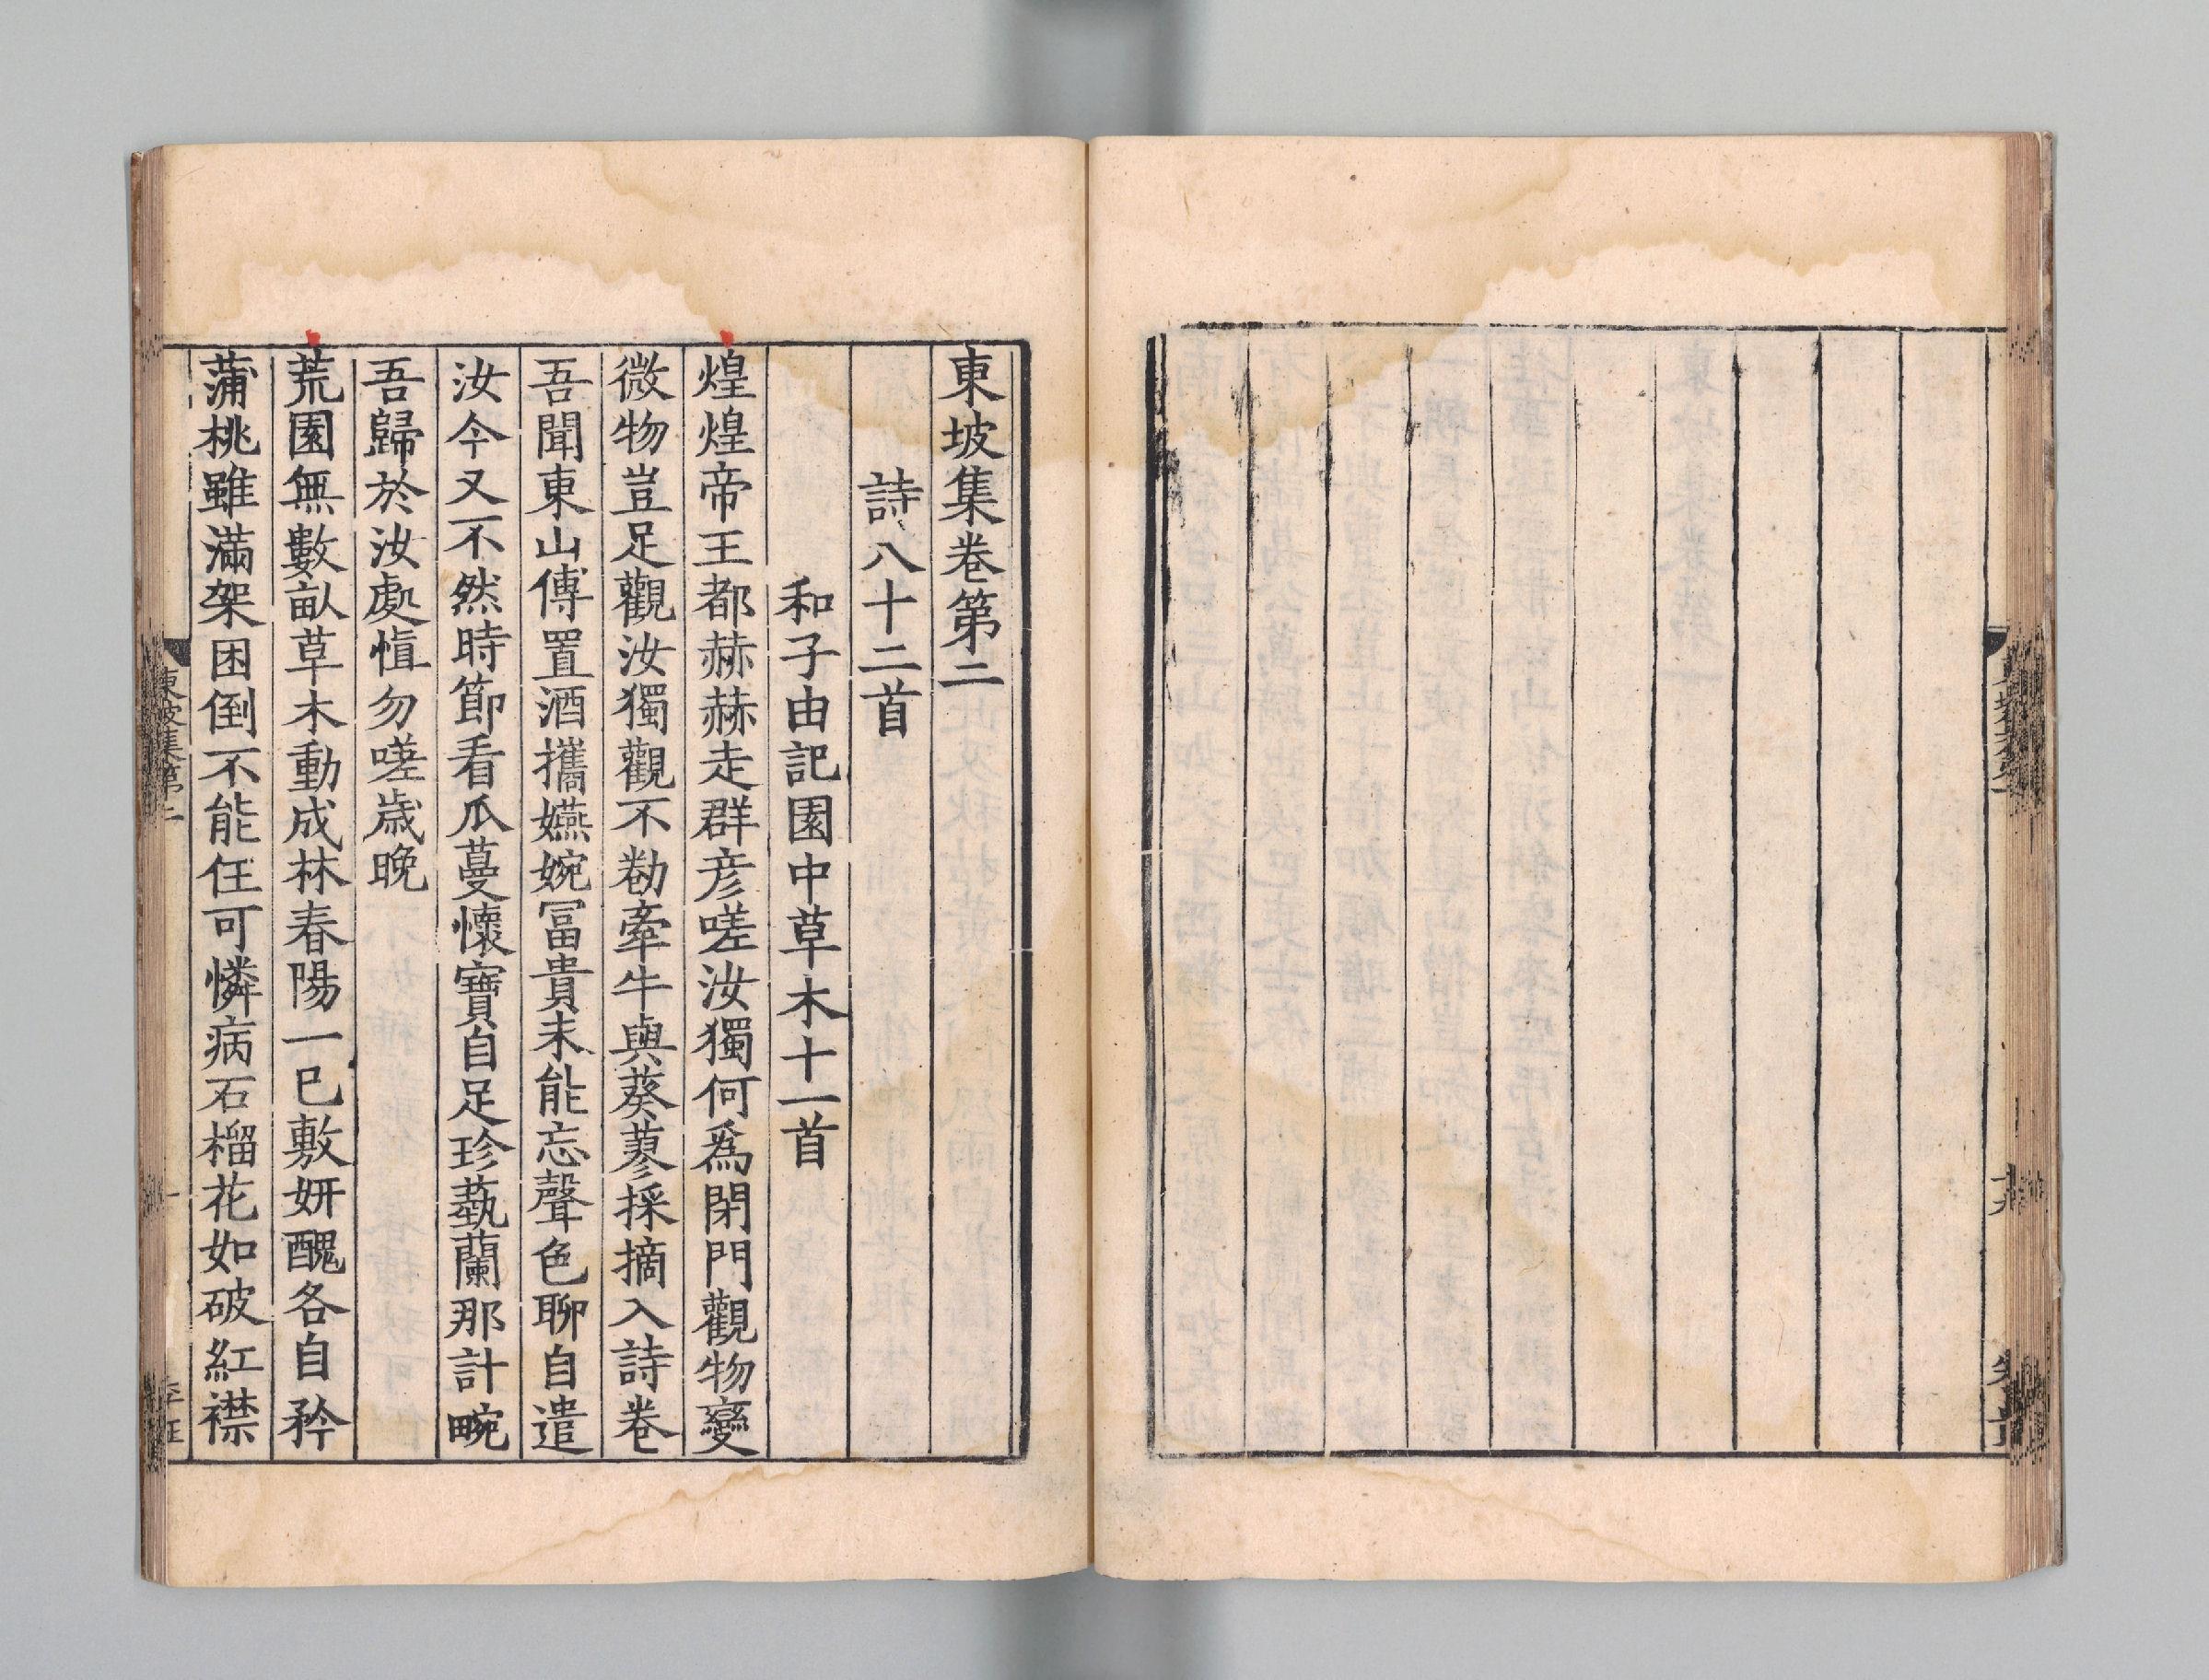 東坡集卷第二
詩八十二首
和子由記園中草木十一首
煌煌帝王都赫赫走群彦嗟汝獨何爲閉門觀物變
微物豈足觀汝獨觀不勌牽牛與葵蓼採摘入詩卷
吾聞東山傅置酒攜嬿婉冨貴未能忘聲色聊自遣
汝今又不然時節看瓜蔓懷寶自足珍蓺蘭那計畹
吾歸於汝處愼勿嗟歳晚
荒園無數畝草木動成林春陽一已敷妍醜各自矜
蒲桃雖滿架囷倒不能任可憐病石榴花如破紅襟
東坡集第二
一